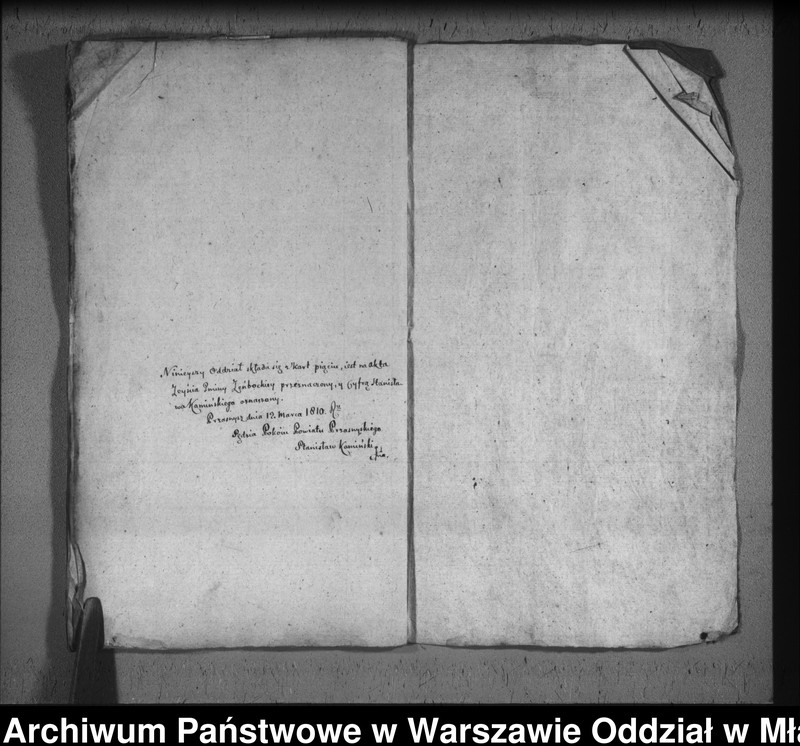 Ninieyszy Oddział składa się z kart pięciu, iest na akta
Zeyścia Gminy Zembockiey przeznaczony, y Cyfrą Stanisła
wa Kamińskiego oznaczony.
Przasnysz dnia 12. Marca 1810. Rz
Sędzia Pokoiu Powiatu Przasnyskiego
Stanisław Kamiński
Archiwum Państwowe w Warszawie Oddział w Mła